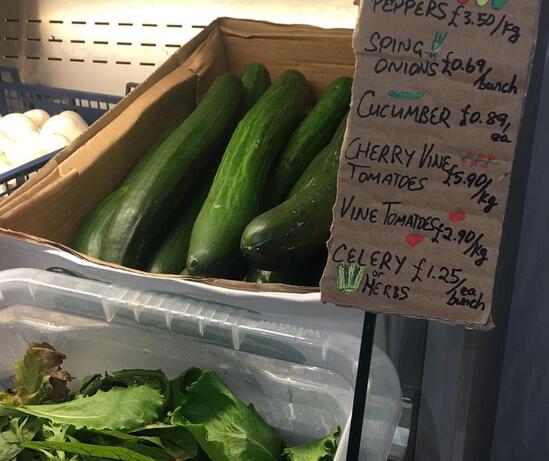 PEPPERS £3.50/kg
SPING-
ONIONS £0.69/bunch
CUCUMBER £0.89/ea
CHERRY VINE
TOMATOES £5.90/kg
VINE TOMATOES £2.90/kg
CELERY £1.25/ea
or HERBS bunch